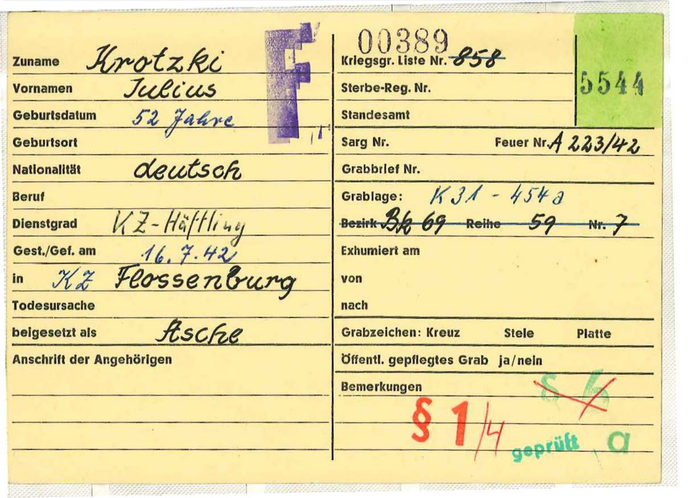 Zuname Krotzki
Vornamen Julius
Geburtsdatum 52 Jahre
Geburtsort
Nationalität deutsch
Beruf
Dienstgrad KZ-Häftling
Gest./Gef. am 16.7.42
in KZ Flossenburg
Todesursache
beigesetzt als Asche
Anschrift der Angehörigen
F
00389
Kriegsgr. Liste Nr. 858
5544
Sterbe-Reg. Nr.
Standesamt
Sarg Nr. Feuer Nr. A 223/42
Grabbrief Nr.
Grablage: K31 - 454a
Bezirk Bk 69 Reihe 59 Nr. 7
Exhumiert am
von
nach
Grabzeichen: Kreuz Stele Platte
Öffentl. gepflegtes Grab ja/nein
Bemerkungen
§ 6
§ 1/4
geprüft a